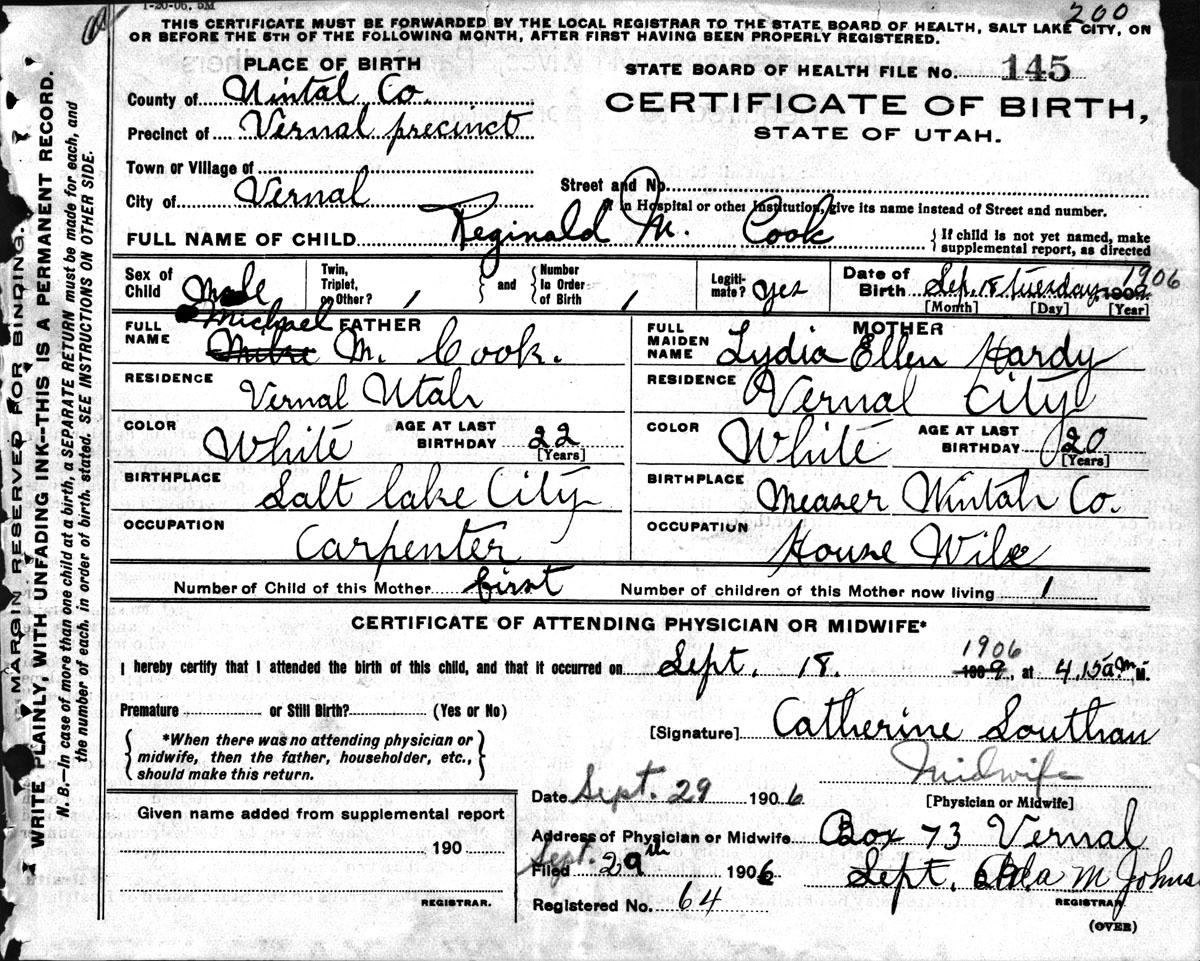 1-20-06. 5M
200
THIS CERTIFICATE MUST BE FORWARDED BY THE LOCAL REGISTRAR TO THE STATE BOARD OF HEALTH, SALT LAKE CITY, ON
OR BEFORE THE 5TH OF THE FOLLOWING MONTH, AFTER FIRST HAVING BEEN PROPERLY REGISTERED.
PLACE OF BIRTH
County of Uintal Co.
Precinct of Vernal precinct
Town or Village of
City of Vernal
STATE BOARD OF HEALTH FILE No. 145
CERTIFICATE OF BIRTH,
STATE OF UTAH.
Street and No.
If in Hospital or other Institution, give its name instead of Street and number.
FULL NAME OF CHILD Reginald M. Cook
If child is not yet named, make
supplemental report, as directed
Sex of Child Male
Twin, Triplet, or Other? 1
and
Number In Order of Birth 1
Legiti-mate? yes
Date of Birth Sep. 18 tuesday 1906
[Month] [Day] [Year]
FATHER
FULL NAME Michael M. Cook.
RESIDENCE Vernal Utah
COLOR White
AGE AT LAST BIRTHDAY 22
[Years]
BIRTHPLACE Salt lake City
OCCUPATION Carpenter
MOTHER
FULL MAIDEN NAME Lydia Ellen Hardy
RESIDENCE Vernal City
COLOR White
AGE AT LAST BIRTHDAY 20
[Years]
BIRTHPLACE Measer Uintah Co.
OCCUPATION House Wife
Number of Child of this Mother first
Number of children of this Mother now living 1
CERTIFICATE OF ATTENDING PHYSICIAN OR MIDWIFE*
I hereby certify that I attended the birth of this child, and that it occurred on Sept. 18. 1906, at 4.15 am M.
Premature or Still Birth? (Yes or No)
*When there was no attending physician or
midwife, then the father, householder, etc.,
should make this return.
[Signature] Catherine Southan
Midwife
[Physician or Midwife]
Date Sept. 29 1906
Address of Physician or Midwife Box 73 Vernal
Filed Sept. 29th 1906
Sept. Ada M Johns
REGISTRAR.
Registered No. 64
(OVER)
Given name added from supplemental report
190
REGISTRAR.
MARGIN RESERVED FOR BINDING.
WRITE PLAINLY, WITH UNFADING INK--THIS IS A PERMANENT RECORD.
N. B.—In case of more than one child at a birth, a SEPARATE RETURN must be made for each, and
the number of each, in order of birth, stated. SEE INSTRUCTIONS ON OTHER SIDE.